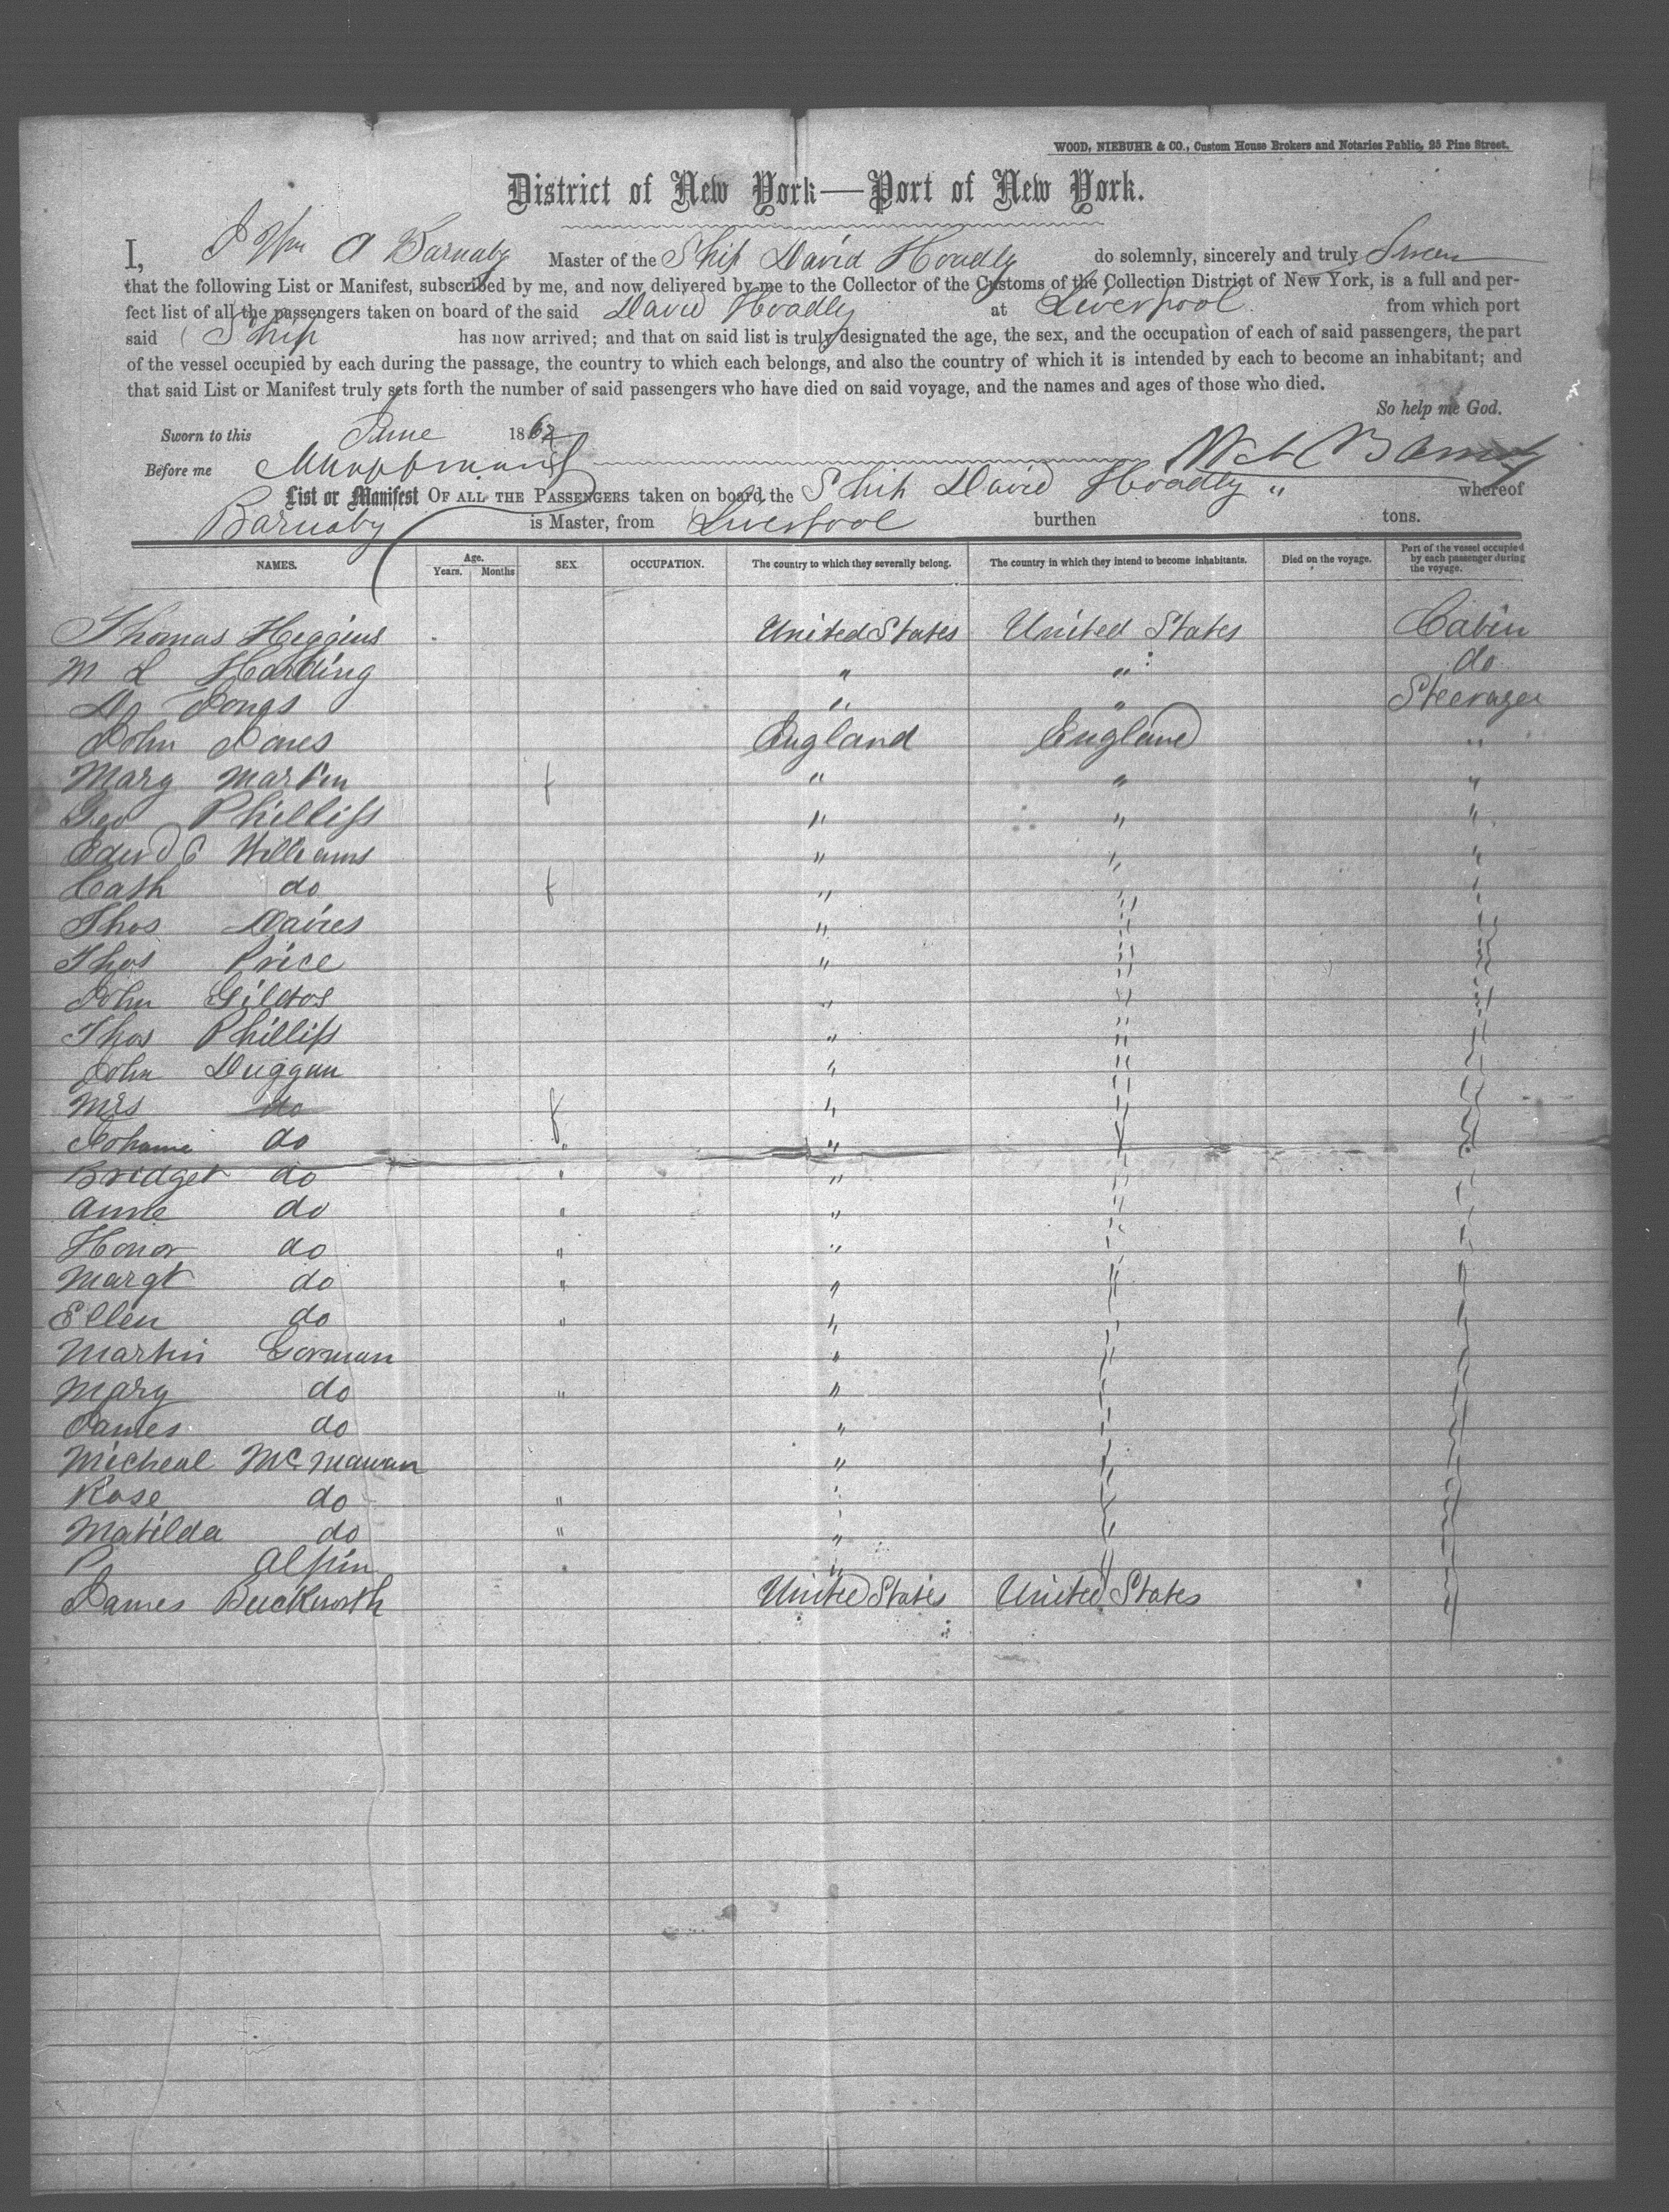 WOOD, NIEBUHR & CO., Custom House Brokers and Notaries Public, 25 Pine Street.
District of New York—Port of New York.
I, I Wm A Barnaby Master of the Ship David Hoadly do solemnly, sincerely and truly Swear
that the following List or Manifest, subscribed by me, and now delivered by me to the Collector of the Customs of the Collection District of New York, is a full and per-
fect list of all the passengers taken on board of the said David Hoadly at Liverpool from which port
said Ship has now arrived; and that on said list is truly designated the age, the sex, and the occupation of each of said passengers, the part
of the vessel occupied by each during the passage, the country to which each belongs, and also the country of which it is intended by each to become an inhabitant; and
that said List or Manifest truly sets forth the number of said passengers who have died on said voyage, and the names and ages of those who died.
So help me God.
Sworn to this June 1862
Before me
List or Manifest OF ALL THE PASSENGERS taken on board the Ship David Hoadly " whereof
Barnaby is Master, from Liverpool burthen tons.
NAMES. Age. Years. Months SEX. OCCUPATION. The country to which they severally belong. The country in which they intend to become inhabitants. Died on the voyage. Part of the vessel occupied by each passenger during the voyage.
Thomas Higgins United States United States Cabin
M L Harding " " do
Jongs " " Steerage
John Jones England England "
Mary Martin f " " "
Geo Phillips " " "
Edwd C Williams " " "
Cath do f " " "
Thos Davies " " "
Thos Price " " "
John " " "
Thos Phillips " " "
John Duggan " " "
Mrs do f " " "
do " " " "
Bridget do " " " "
Anne do " " " "
Honor do " " " "
Margt do " " " "
Ellen do " " " "
Martin Gorman " " "
Mary do " " " "
James do " " "
Micheal McManan " " "
Rose do " " " "
Matilda do " " " "
P Alpin " " " "
James Buckworth United States United States "